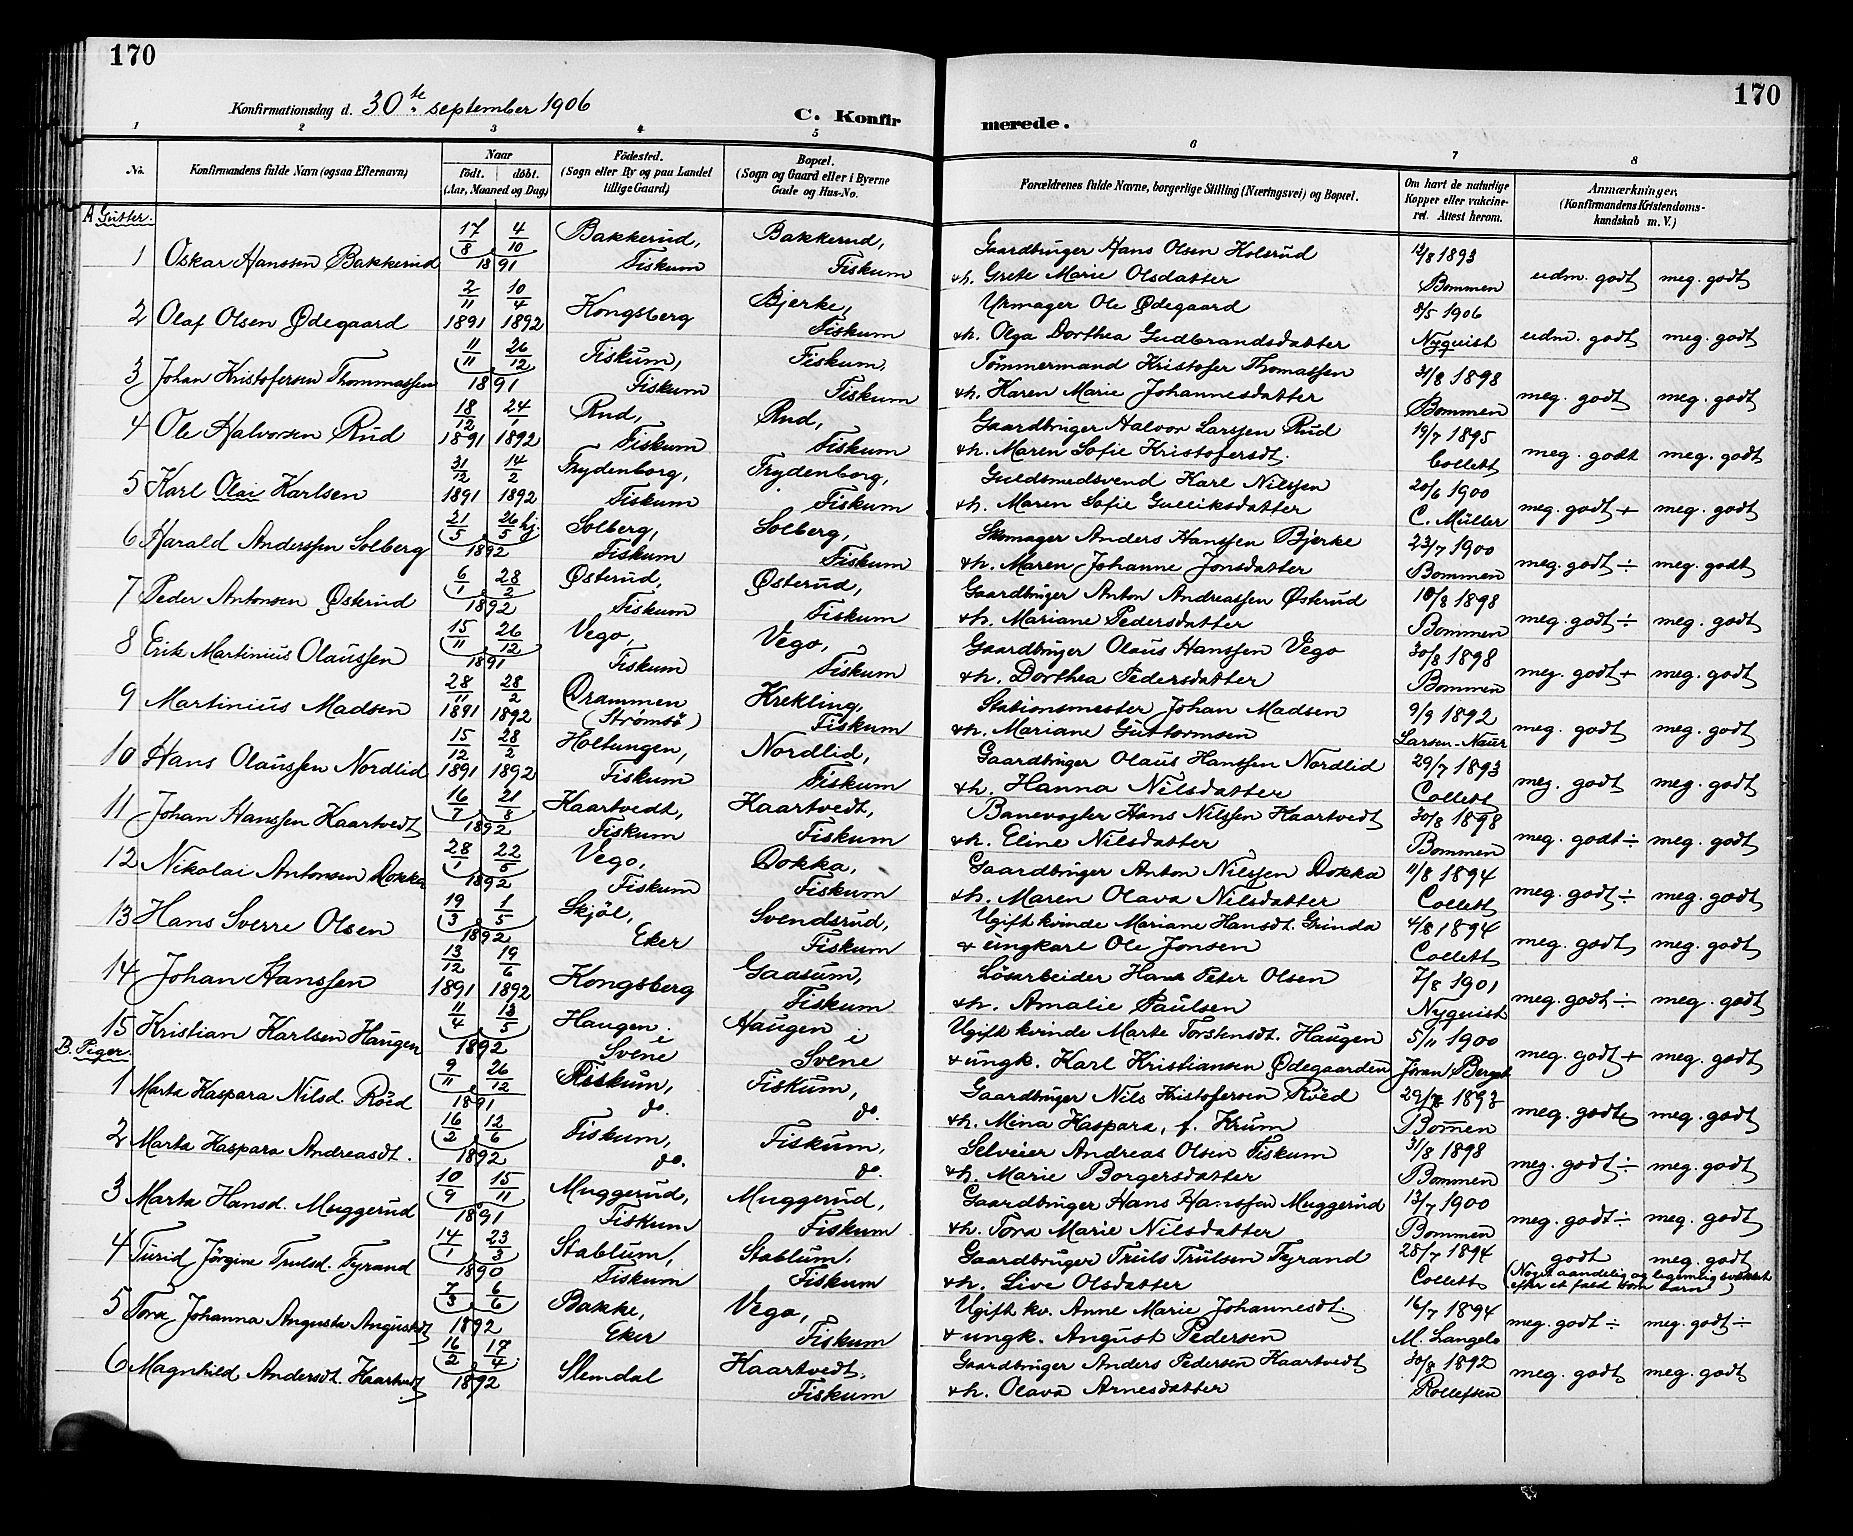 170
170
Konfirmationsdag d. 30te september 1906
C. Konfirmerede.
1 2 3 4 5 6 7 8
No.
Konfirmandens fulde Navn (ogsaa Efternavn)
Naar
født. døbt.
(Aar, Maaned og Dag)
Fødested.
(Sogn eller By og paa Landet
tillige Gaard)
Bopæl.
(Sogn og Gaard eller i Byerne
Gade og Hus-No.
Forældrenes fulde Navne, borgerlige Stilling (Næringsvei) og Bopæl.
Om havt de naturlige
Kopper eller vakcine-
ret. Attest herom.
Anmærkninger.
(Konfirmandens Kristendoms-
kundskab m. V.)
A Gutter.
1 Oskar Hanssen Bakkerud 17/8 4/10 1891 Bakkerud, Fiskum Bakkerud, Fiskum Gaardbruger Hans Olsen Kolsrud
+h. Grete Marie Olsdatter 12/8 1893 Bommen udm. godt meg. godt
2 Olaf Olsen Ødegaard 2/11 1891 10/4 1892 Kongsberg Bjerke, Fiskum Urmager Ole Ødegaard
+h. Olga Dorthea Gudbrandsdatter 8/5 1906 Nyquist udm. godt meg. godt
3 Johan Kristofersen Thommassen 11/11 26/12 1891 Fiskum, Fiskum Fiskum, Fiskum Tömmermand Kristofer Thomassen
+h. Karen Marie Johannesdatter 31/8 1898 Bommen meg. godt meg. godt
4 Ole Halvorsen Rud 18/12 1891 24/1 1892 Rud, Fiskum Rud, Fiskum Gaardbruger Halvor Larssen Rud
+h. Maren Sofie Kristofersdt. 19/7 1895 Collett meg. godt meg. godt
5 Karl Olai Karlsen 31/12 1891 14/2 1892 Frydenborg, Fiskum Frydenborg, Fiskum Guldsmedsvend Karl Nilssen
+h. Maren Sofie Gulliksdatter 20/6 1900 C. Müller meg. godt + meg. godt
6 Harald Anderssen Solberg 21/5 26/5 hj. 1892 Solberg, Fiskum Solberg, Fiskum Skomager Anders Hanssen Bjerke
+h. Maren Johanne Jonsdatter 23/7 1900 Bommen meg. godt ÷ meg. godt
7 Peder Antonsen Østerud 6/1 28/2 1892 Østerud, Fiskum Østerud, Fiskum Gaardbruger Anton Andreassen Østerud
+h. Mariane Pedersdatter 10/8 1898 Bommen meg. godt ÷ meg. godt
8 Erik Martinius Olaussen 15/11 26/12 1891 Vego, Fiskum Vego, Fiskum Gaardbruger Olaus Hanssen Vego
+h. Dorthea Pedersdatter 30/8 1898 Bommen meg. godt + meg. godt
9 Martinius Madsen 28/11 1891 28/2 1892 Drammen (Strømsø) Krekling, Fiskum Stationsmester Johan Madsen
+h. Mariane Guttormsen 9/9 1892 Larsen-Naur meg. godt meg. godt
10 Hans Olaussen Nordlid 15/12 1891 28/2 1892 Holtungen, Fiskum Nordlid, Fiskum Gaardbruger Olaus Hanssen Nordlid
+h. Hanna Nilsdatter 29/7 1893 Collett meg. godt meg. godt
11 Johan Hanssen Kaartvedt 16/7 21/8 1892 Kaartvedt, Fiskum Kaartvedt, Fiskum Banevogter Hans Nilssen Kaartvedt
+h. Eline Nilsdatter 30/8 1898 Bommen meg. godt ÷ meg. godt
12 Nikolai Antonsen Dokka 28/1 22/5 1892 Vego, Fiskum Dokka, Fiskum Gaardbruger Anton Nilssen Dokka
+h. Maren Olava Nilsdatter 11/8 1894 Collett meg. godt ÷ meg. godt
13 Hans Sverre Olsen 19/3 1/5 1892 Skjöl, Eker Svendsrud, Fiskum Ugift kvinde Mariane Hansdt. Grinda
+ ungkarl Ole Jonsen 4/8 1894 Collett meg. godt meg. godt
14 Johan Hanssen 13/12 1891 19/6 1892 Kongsberg Gaasum, Fiskum Lösarbeider Hans Peter Olsen
+h. Amalie Paulsen 7/8 1901 Nyquist meg. godt ÷ meg. godt
15 Kristian Karlsen Haugen 11/4 13/5 1892 Haugen i Svene Haugen i Svene Ugift kvinde Marte Torstensdt. Haugen
+ ungk. Karl Kristiansen Ødegaarden 5/11 1900 meg. godt + meg. godt
B. Piger.
1 Marta Kaspara Nilsd. Röed 9/11 26/12 1891 Fiskum, do. Fiskum, do. Gaardbruger Nils Kristofersen Röed
+h. Mina Kaspara, f. Krum 29/7 1893 Bomen meg. godt meg. godt
2 Marta Kaspara Andreasdt. 16/2 12/6 1892 Fiskum, do. Fiskum, do. Selveier Andreas Olsen Fiskum
+h. Marie Borgersdatter 31/8 1898 Bommen meg. godt ÷ meg. godt
3 Marta Hansd. Muggerud 10/9 15/11 1891 Muggerud, Fiskum Muggerud, Fiskum Gaardbruger Hans Hanssen Muggerud
+h. Tora Marie Nilsdatter 13/7 1900 Bommen meg. godt ÷ meg. godt
4 Turid Jörgine Trulsd. Fyrand 14/1 23/3 1890 Stablum, Fiskum Stablum, Fiskum Gaardbruger Truls Trulsen Fyrand
+h. Live Olsdatter 28/7 1894 Collett godt meg. godt
(Noget aandelig og legemlig svækket
efter et fald som barn)
5 Tora Johanna Augusta Augustdt 7/3 6/6 1892 Bakke, Eker Vego, Fiskum Ugift kv. Anne Marie Johannesdt.
+ ungk. August Pedersen 16/7 1894 M. Langelo meg. godt ÷ meg. godt ÷
6 Magnhild Andersdt. Kaartvedt 16/2 17/4 1892 Slemdal Kaartvedt, Fiskum Gaardbruger Anders Pedersen Kaartvedt
+h. Olava Arnesdatter 30/8 1892 Rollefsen meg. godt meg. godt